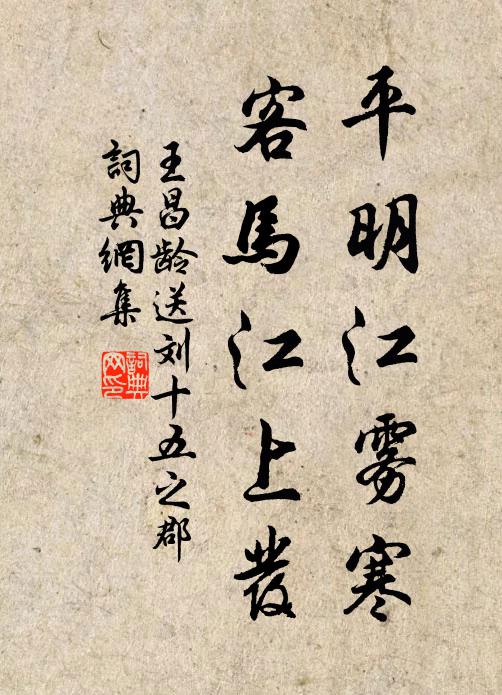 平明江雾寒
客馬江上發
王昌龄送刘十五之郡
詞典網集
詞典网印